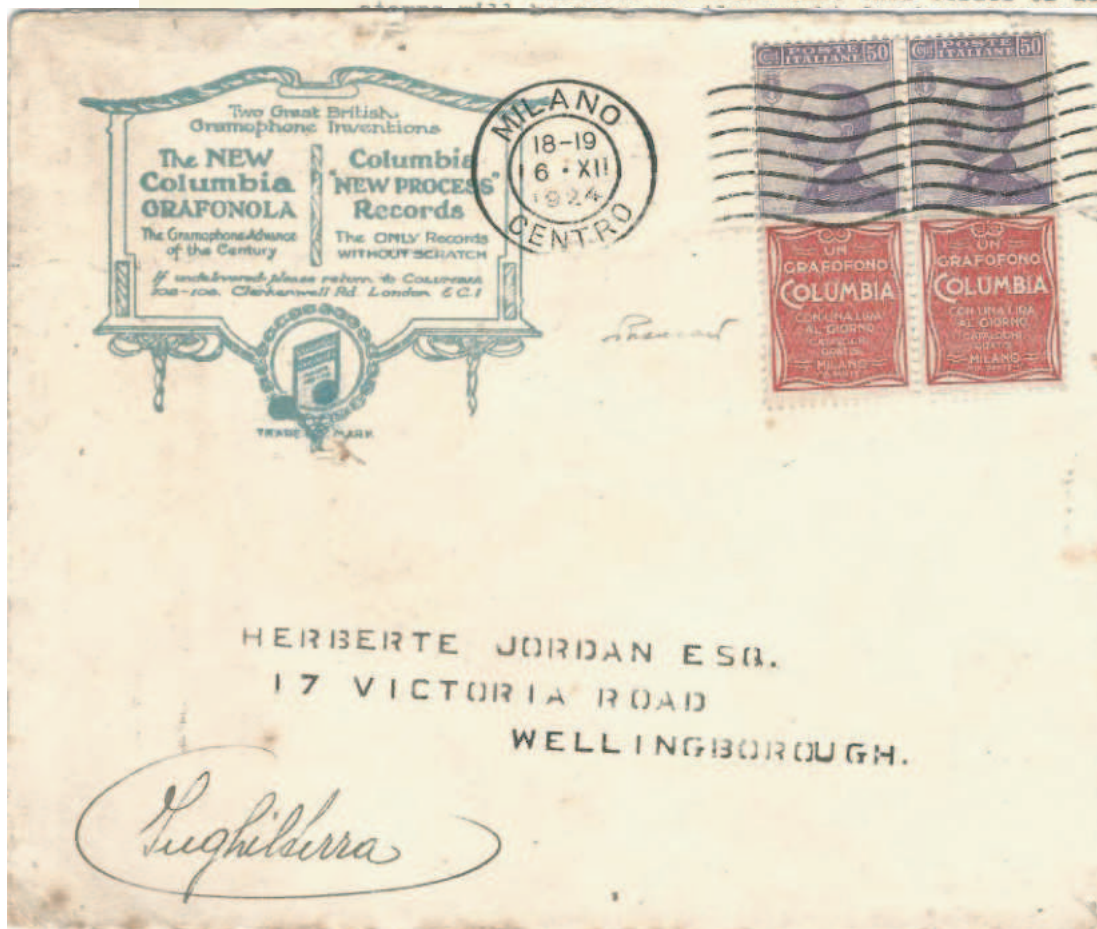 stamps will be
Two Great British
Gramophone Inventions
The NEW
Columbia
GRAFONOLA
The Gramophone Advance
of the Century
Columbia
"NEW PROCESS"
Records
The ONLY Records
WITHOUT SCRATCH
If undelivered please return to COLUMBIA
102-108, Clerkenwell Rd. London E.C.1
TRADE MARK
MILANO
18-19
6 · XII
1924
CENTRO
Cent POSTE 50
ITALIANE
Cent POSTE 50
ITALIANE
UN
GRAFOFONO
COLUMBIA
CON UNA LIRA
AL GIORNO
CATALOGHI
GRATIS
MILANO
UN
GRAFOFONO
COLUMBIA
CON UNA LIRA
AL GIORNO
CATALOGHI
GRATIS
MILANO
HERBERTE JORDAN ESQ.
17 VICTORIA ROAD
WELLINGBOROUGH.
Inghilterra